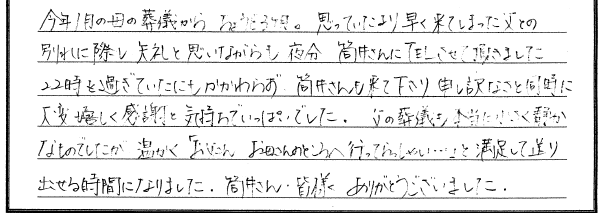 今年1月の母の葬儀から およそ3ヶ月。思っていたより早く来てしまった父との
別れに際し 失礼と思いながらも 夜分 筒井さんにTELさせて頂きました
22時を過ぎていたにもかかわらず 筒井さんも来て下さり 申し訳なさと同時に
大変嬉しく感謝と気持ちでいっぱいでした。 父の葬儀も 本当に小さく静か
なものでしたが 温かく「お父さん お母さんのところへ行ってらっしゃい…」と 満足して送り
出せる時間になりました。筒井さん・皆様 ありがとうございました。